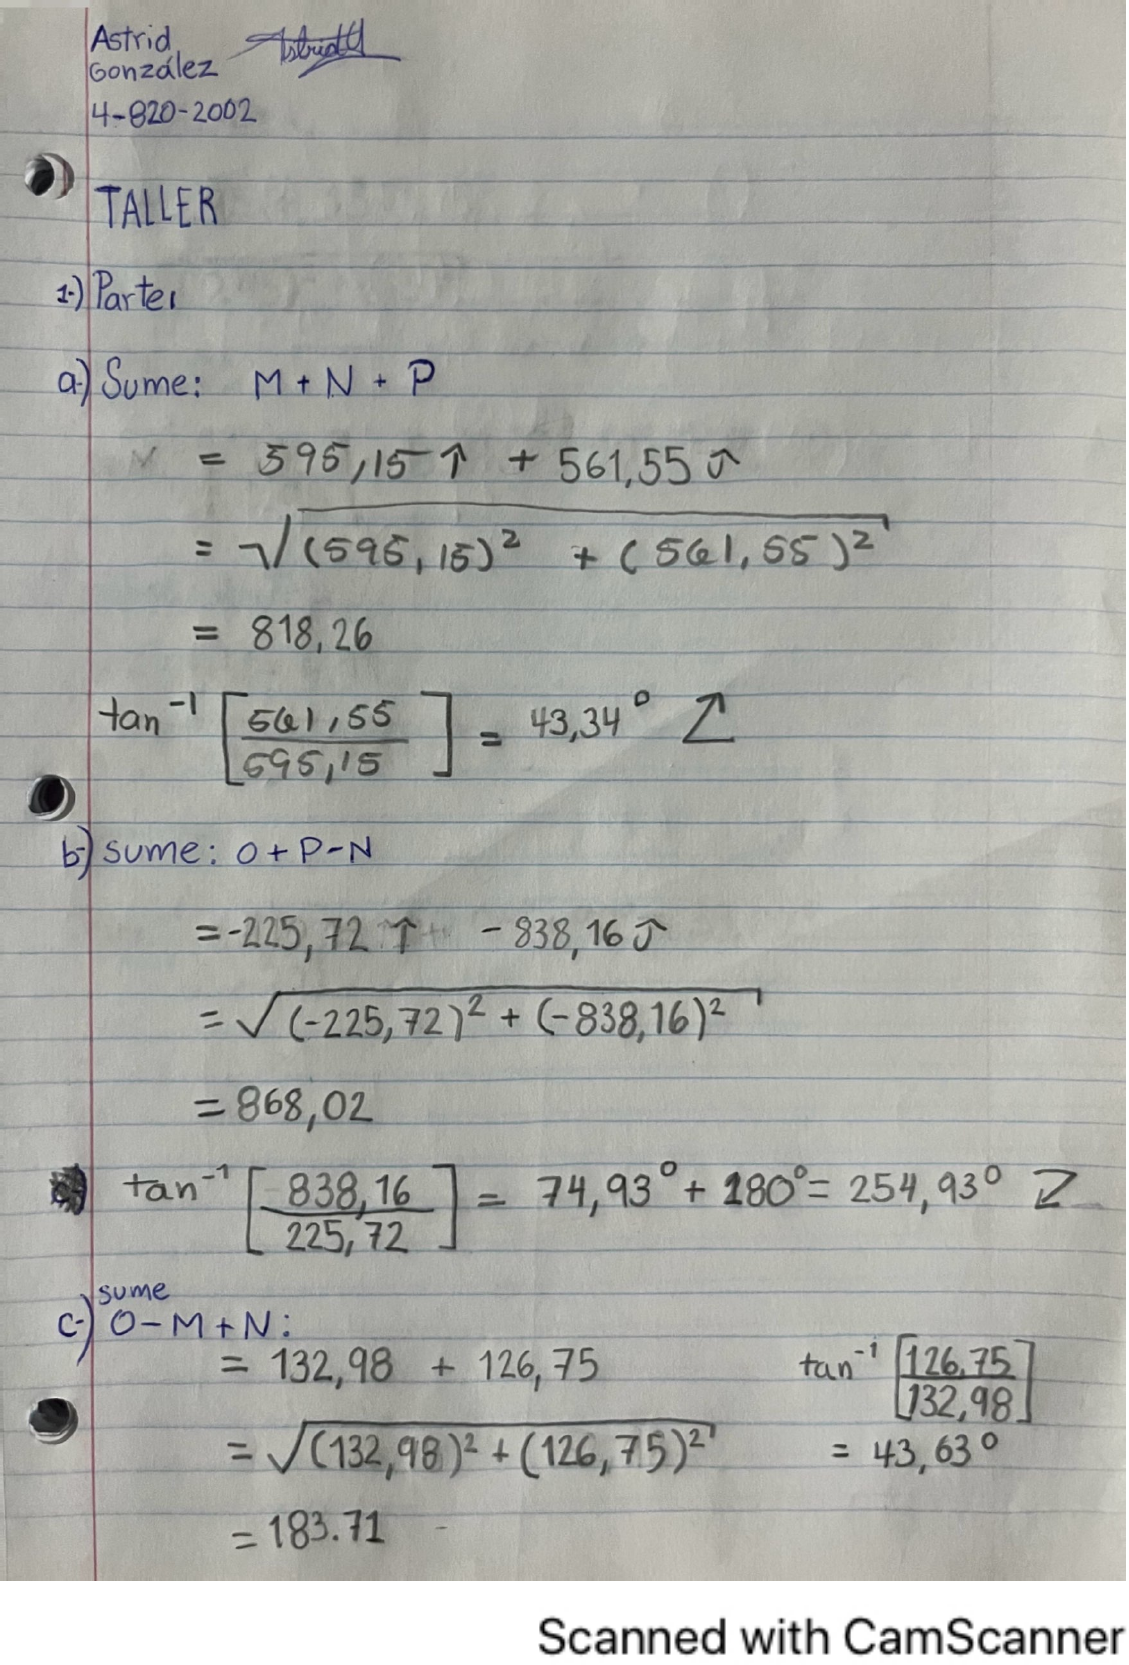 Astrid
González
4-820-2002
TALLER
1-) Parte1
a-) Sume: M + N + P
= 595,15 ↑ + 561,55 ↑
= √(595,15)² + (561,55)²
= 818,26
tan⁻¹ [561,55 / 595,15] = 43,34°
b-) sume: O + P - N
= -225,72 ↑ - 838,16 ↑
= √(-225,72)² + (-838,16)²
= 868,02
tan⁻¹ [838,16 / 225,72] = 74,93° + 180° = 254,93°
sume
c-) O - M + N:
= 132,98 + 126,75
= √(132,98)² + (126,75)²
= 183.71
tan⁻¹ [126,75 / 132,98]
= 43,63°
Scanned with CamScanner